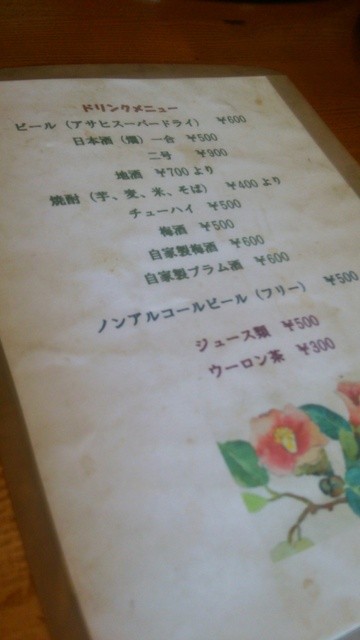 ドリンクメニュー
ビール（アサヒスーパードライ） ￥600
日本酒（燗）一合 ￥500
二号 ￥900
地酒 ￥700より
焼酎（芋、麦、米、そば） ￥400より
チューハイ ￥500
梅酒 ￥500
自家製梅酒 ￥600
自家製プラム酒 ￥600
ノンアルコールビール（フリー） ￥500
ジュース類 ￥500
ウーロン茶 ￥300